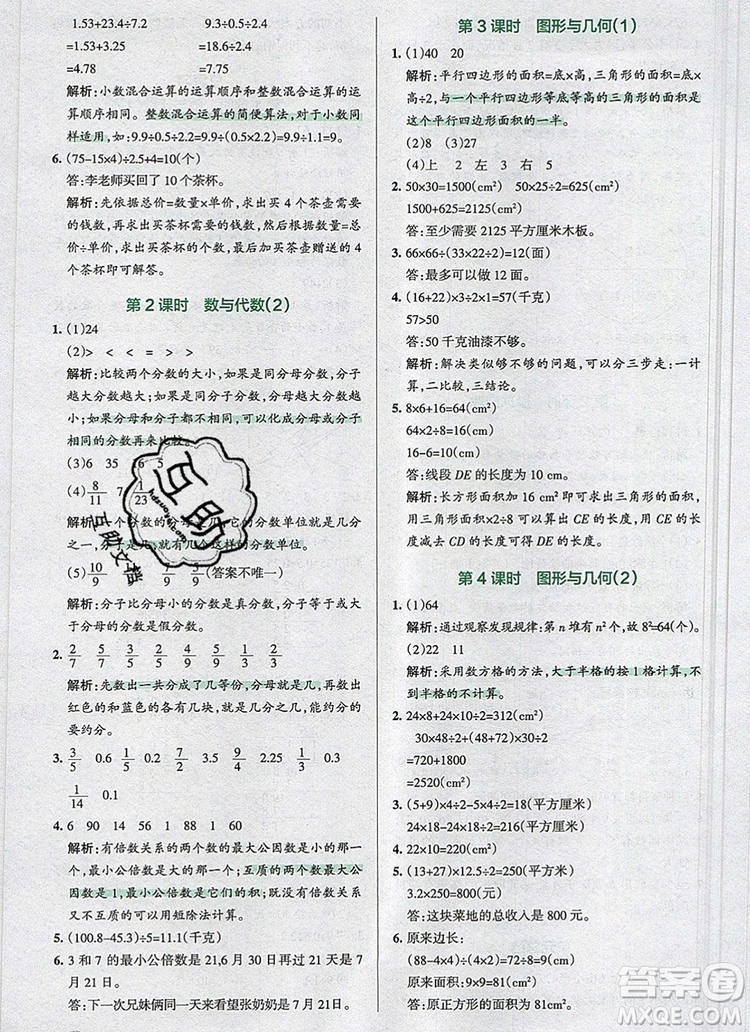 1.53+23.4÷7.2 9.3÷0.5÷2.4
=1.53+3.25 =18.6÷2.4
=4.78 =7.75
解析:小数混合运算的运算顺序和整数混合运算的运
算顺序相同。整数混合运算的简便算法,对于小数同
样适用,如:9.9÷0.5÷2.2=9.9÷(0.5×2.2)=9.9÷1.1=9。
6. (75-15×4)÷2.5+4=10(个)
答:李老师买回了 10 个茶杯。
解析:先依据总价=数量×单价,求出买 4 个茶壶需要
的钱数,再求出买茶杯需要的钱数,最后根据数量=总
价÷单价,求出买茶杯的个数,再加买茶壶赠送的 4
个茶杯即可解答。
第 2 课时 数与代数(2)
1. (1)24
(2)> < < = > >
解析:比较两个分数的大小,如果是同分母分数,分子
越大分数越大;如果是同分子分数,分母越大分数越
小;如果分母和分子都不相同,可以化成分母或分子
相同的分数再来比较。
(3)6 35 6 5
(4)8/11 7 1/23
解析:分数的分母是几,它的分数单位就是几分
之一,分子是几,就有几个这样的分数单位。
(5)10/9 9/9 9/10(答案不唯一)
解析:分子比分母小的分数是真分数,分子大于或等
于分母的分数是假分数。
2. 2/7 5/7 5/7 2/7 2/5 5/2
解析:先数出一共分成了几等份,是分母,再数出
红色的和蓝色的各有几块,就是分子。能约分的
要约分。
3. 3/5 0.6 1/5 0.2 7/2 3.5 9/4 2.25 0.3
1/14 0.1
4. 6 90 14 56 1 88 1 60
解析:有倍数关系的两个数的最大公因数是小的那一
个,最小公倍数是大的那一个;互质的两个数最大公
因数是 1,最小公倍数是它们的积;既没有倍数关系
又不互质的可以用短除法计算。
5. (100.8-45.3)÷5=11.1(千克)
6. 3 和 7 的最小公倍数是 21,6 月 30 日再过 21 天是 7
月 21 日。
答:下一次兄妹俩同一天来看望张奶奶是 7 月 21 日。
第 3 课时 图形与几何(1)
1. (1)40 20
解析:平行四边形的面积=底×高,三角形的面积=底×
高÷2,与一个平行四边形等底等高的三角形的面积是
这个平行四边形面积的一半。
(2)8 (3)27
(4)上 2 左 3 右 5
2. 50×30=1500(cm²)
1500+625=2125(cm²)
答:至少需要 2125 平方厘米木板。
3. 66×66÷(33×22÷2)=12(面)
答:最多可以做 12 面。
4. (16+22)×3÷2×1=57(千克)
57>50
答:50 千克油漆不够。
解析:解决类似够不够的问题,可以分三步走:一计
算,二比较,三结论。
5. 8×6+16=64(cm²)
64×2÷8=16(cm)
16-6=10(cm)
答:线段 DE 的长度为 10 cm。
解析:长方形面积加 16 cm² 即可求出三角形的面积,
用三角形的面积×2÷8 可以算出 CE 的长度,用 CE 的
长度减去 CD 的长度可得 DE 的长度。
第 4 课时 图形与几何(2)
1. (1)64
解析:通过观察发现规律:第 n 堆有 n² 个,故 8²=64(个)。
(2)22 11
解析:采用数方格的方法,大于半格的按 1 格计算,不
到半格的不计算。
2. 24×8+24×10÷2=312(cm²)
30×48÷2+(48+72)×30÷2
=720+1800
=2520(cm²)
3. (5+9)×4÷2-5×4÷2=18(平方厘米)
24×18-24×18÷2=216(平方厘米)
4. 22×10=220(cm²)
5. (13+27)×12.5÷2=250(平方米)
3.2×250=800(元)
答:这块菜地的总收入是 800 元。
6. 原来边长:
(88-4×4)÷(4×2)=9(cm)
原来面积:9×9=81(cm²)
答:原正方形的面积为 81cm²。
互助
互助文档
答案圈
MXQE.COM